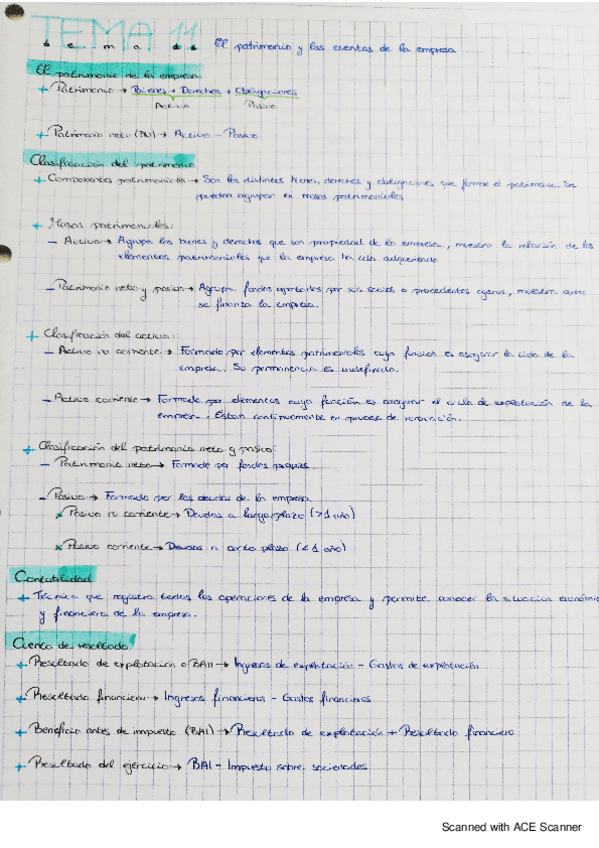 TEMA 11
t e m a 11 El patrimonio y las cuentas de la empresa
El patrimonio de la empresa
+ Patrimonio → Bienes + Derechos + Obligaciones
Activo Pasivo
+ Patrimonio neto (PN) → Activo - Pasivo
Clasificación del patrimonio
+ Componentes patrimoniales → Son los distintos bienes, derechos y obligaciones que forman el patrimonio. Se
pueden agrupar en masas patrimoniales
+ Masas patrimoniales:
- Activo → Agrupa los bienes y derechos que son propiedad de la empresa, muestra la relación de los
elementos patrimoniales que la empresa ha ido adquiriendo
- Patrimonio neto y pasivo → Agrupa fondos aportados por sus socios o procedentes ajenos, muestra como
se financia la empresa.
+ Clasificación del activo:
- Activo no corriente → Formado por elementos patrimoniales cuya función es asegurar la vida de la
empresa. Su permanencia es indefinida.
- Activo corriente → Formado por elementos cuya función es asegurar el ciclo de explotación de la
empresa. Están continuamente en proceso de renovación.
+ Clasificación del patrimonio neto y pasivo:
- Patrimonio neto → Formado por fondos propios.
- Pasivo → Formado por las deudas de la empresa.
x Pasivo no corriente → Deudas a largo plazo (>1 año)
x Pasivo corriente → Deudas a corto plazo (<1 año)
Contabilidad
+ Técnica que registra todas las operaciones de la empresa y permite conocer la situación económica
y financiera de la empresa.
Cuenta de resultado
+ Resultado de explotación o BAII → Ingresos de explotación - Gastos de explotación
+ Resultado financiero → Ingresos financieros - Gastos financieros
+ Beneficio antes de impuesto (BAI) → Resultado de explotación + Resultado financiero
+ Resultado del ejercicio → BAI - Impuesto sobre sociedades
Scanned with ACE Scanner